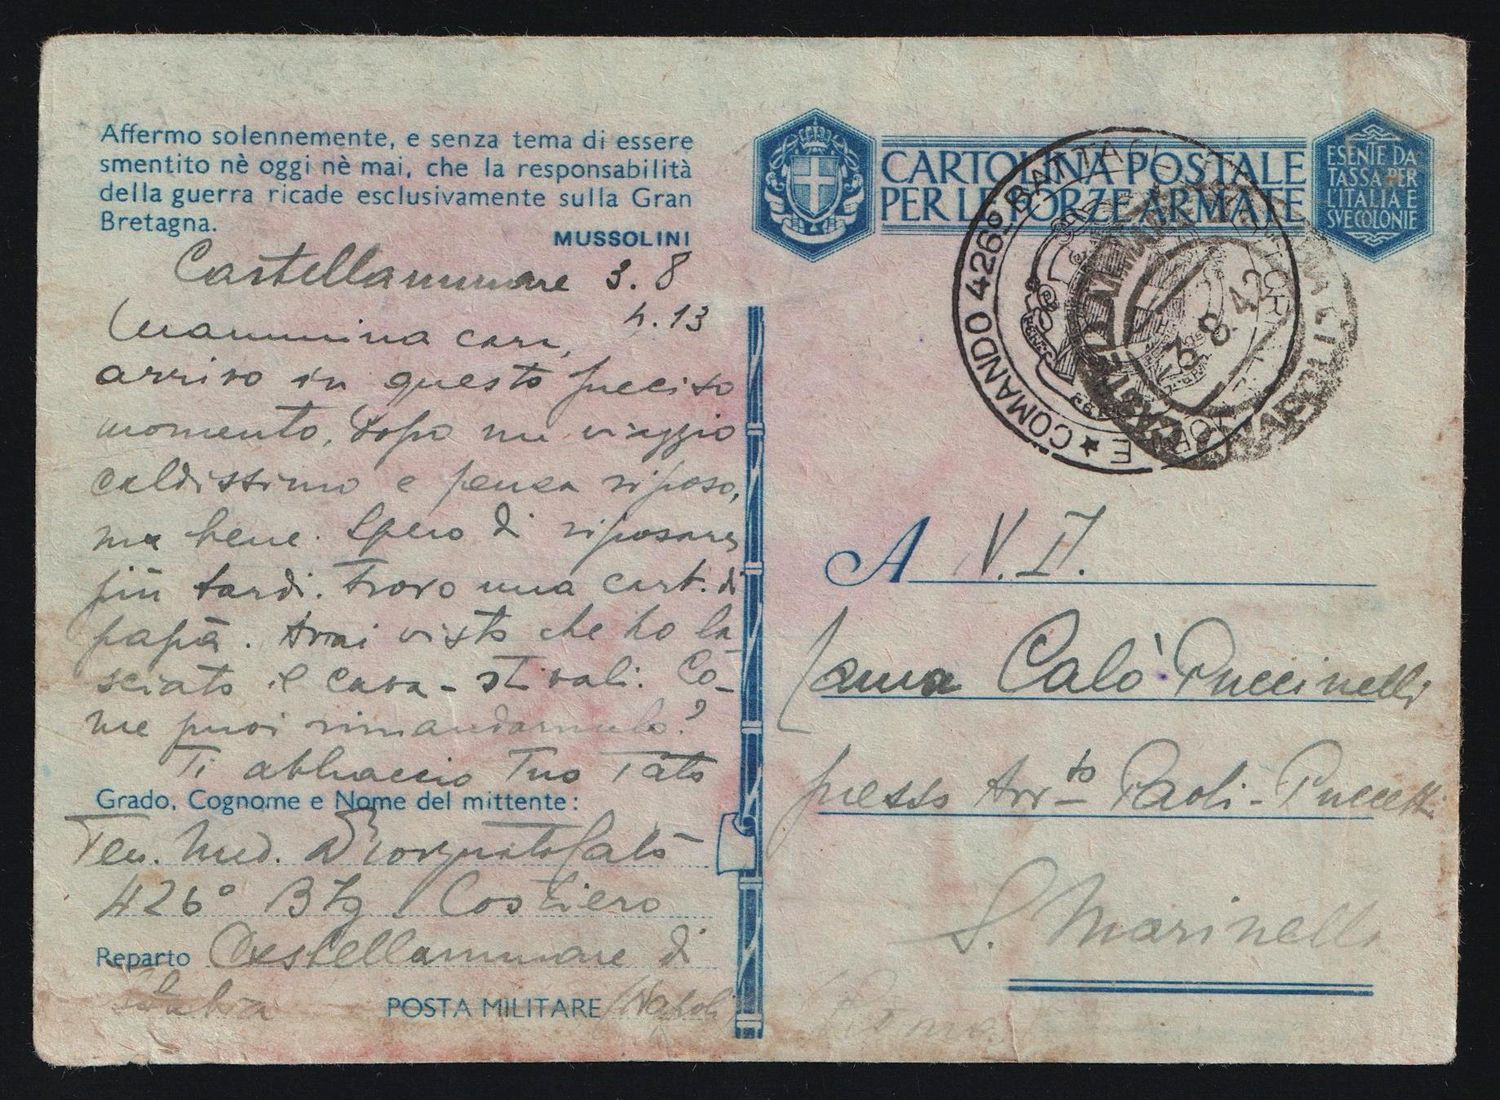 Affermo solennemente, e senza tema di essere
smentito nè oggi nè mai, che la responsabilità
della guerra ricade esclusivamente sulla Gran
Bretagna.
MUSSOLINI
Castellammare 3.8
h. 13
Mammina cara,
arrivo in questo preciso
momento, dopo un viaggio
caldissimo e senza riposo,
ma bene. Spero di riposare
più tardi. Trovo una cart. di
papà. Avrai visto che ho la-
sciato il cava-stivali. Co-
me puoi rimandarmelo?
Ti abbraccio Tuo Tato
Grado, Cognome e Nome del mittente:
Ten. Med.
426° Btg. Costiero
Reparto Castellammare di
Stabia POSTA MILITARE (Napoli)
CARTOLINA POSTALE
PER LE FORZE ARMATE
ESENTE DA
TASSA PER
L'ITALIA E
SUE COLONIE
COMANDO 426° BATTAGL
3 8 42
NAPOLI
A N. D.
Calò Puccinelli
presso Avv.to Paoli-Puccetti
S. Marinella
Roma